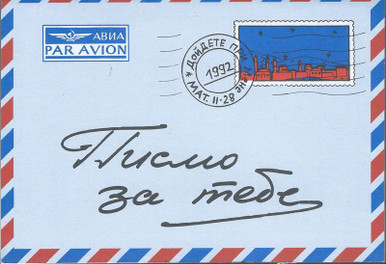 АВИА
PAR AVION
ДОЙДЕТЕ ПРИ
1992
МАТ. II-28
Писмо
за тебе